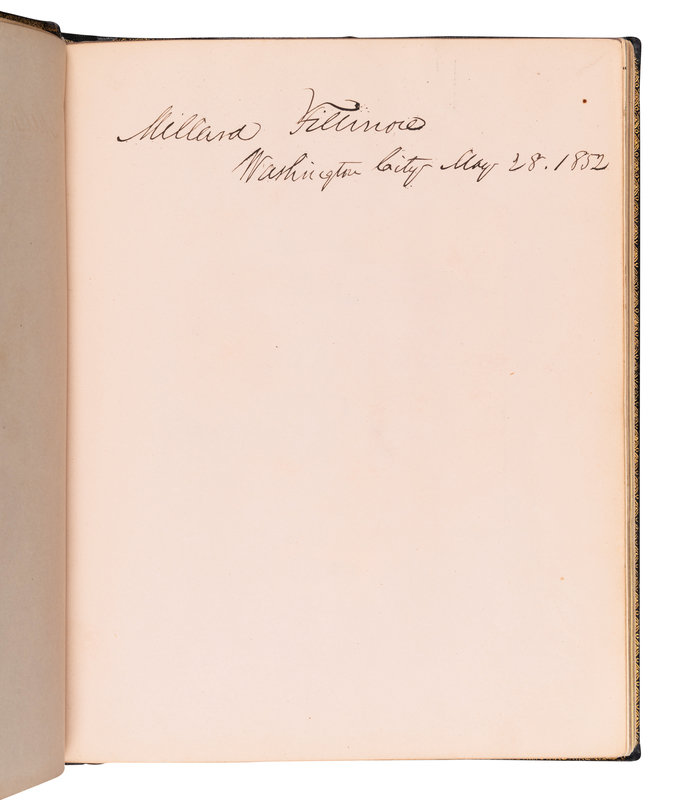 Millard Fillmore
Washington City May 28. 1852